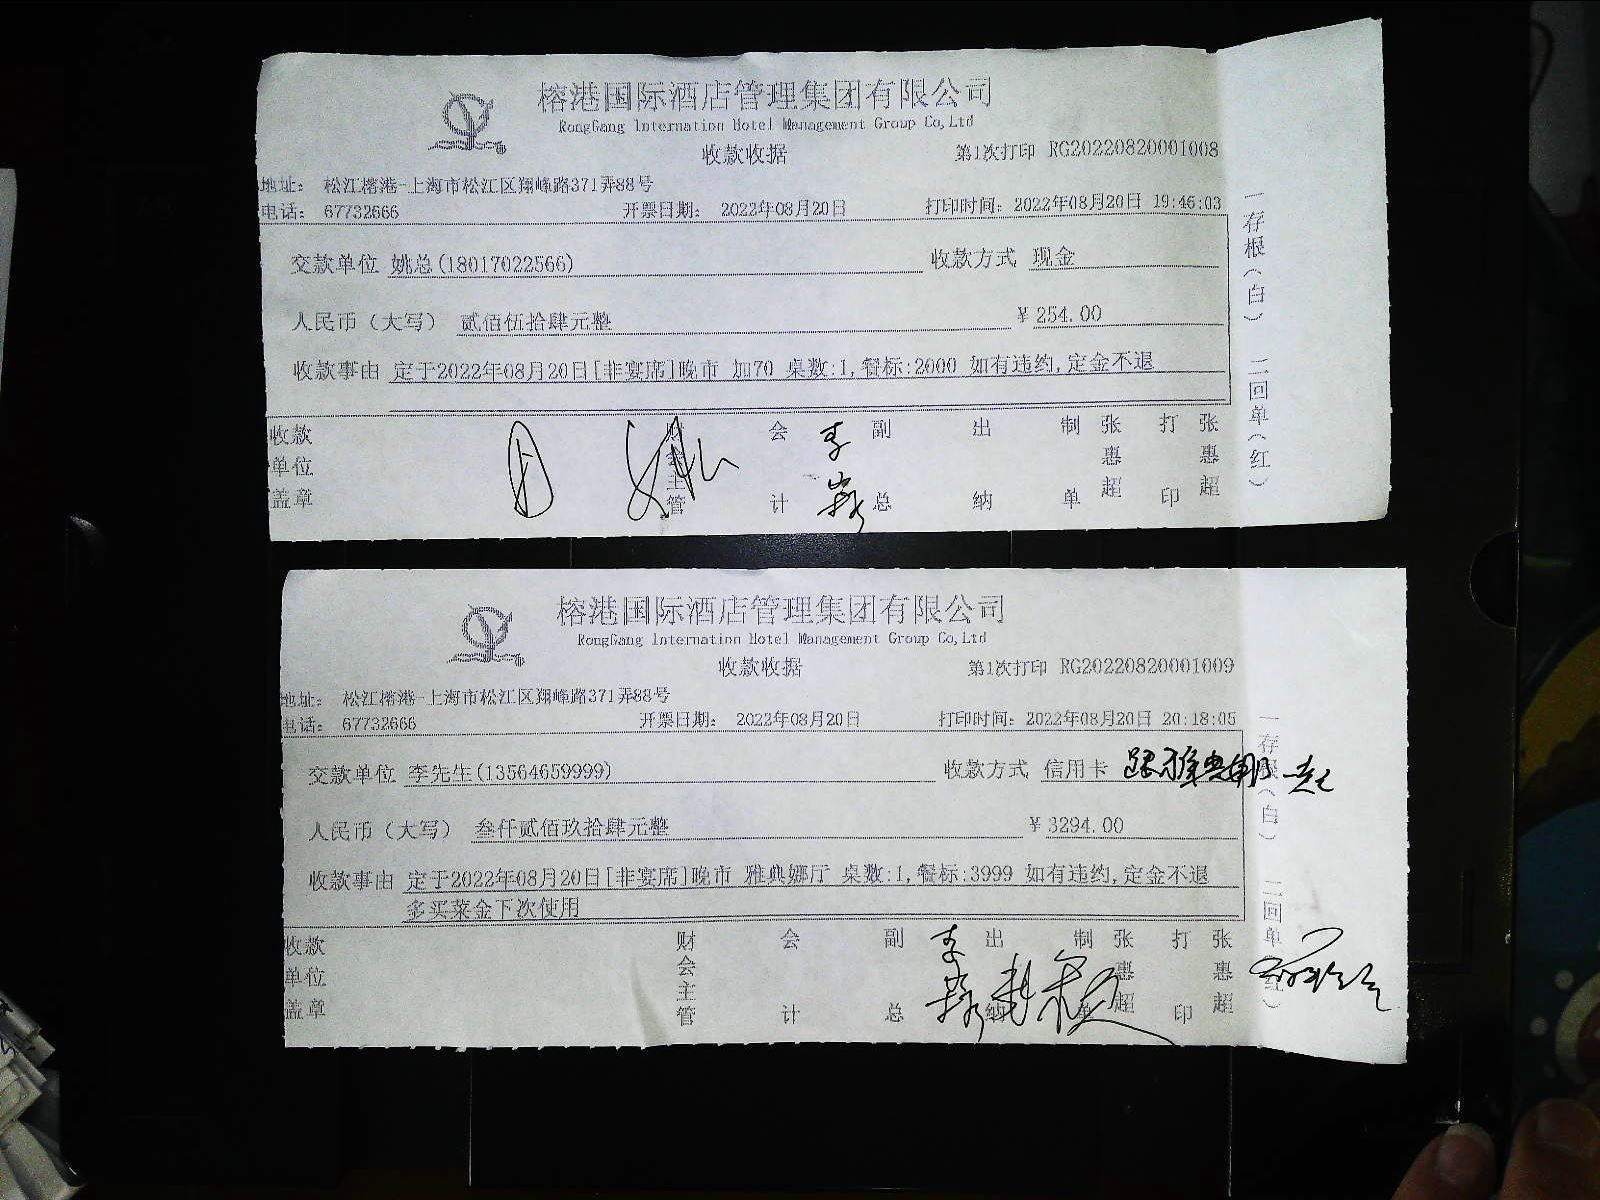 榕港国际酒店管理集团有限公司
RongGang Internation Hotel Management Group Co,Ltd
收款收据 第1次打印 RG20220820001008
地址： 松江榕港-上海市松江区翔峰路371弄88号
电话： 67732666 开票日期： 2022年08月20日 打印时间：2022年08月20日 19:46:03
交款单位 姚总(18017022566) 收款方式 现金
人民币（大写） 贰佰伍拾肆元整 ￥254.00
收款事由 定于2022年08月20日[非宴席]晚市 加70 桌数:1,餐标:2000 如有违约,定金不退
收款单位盖章 财会主管 会计 李 副总 出纳 制单 张惠超 打印 张惠超
一存根（白） 二回单（红）
榕港国际酒店管理集团有限公司
RongGang Internation Hotel Management Group Co,Ltd
收款收据 第1次打印 RG20220820001009
地址： 松江榕港-上海市松江区翔峰路371弄88号
电话： 67732666 开票日期： 2022年08月20日 打印时间：2022年08月20日 20:18:05
交款单位 李先生(13564659999) 收款方式 信用卡
人民币（大写） 叁仟贰佰玖拾肆元整 ￥3294.00
收款事由 定于2022年08月20日[非宴席]晚市 雅典娜厅 桌数:1,餐标:3999 如有违约,定金不退
多买菜金下次使用
收款单位盖章 财会主管 会计 副总 李 出纳 制单 张惠超 打印 张惠超
一存根（白） 二回单（红）